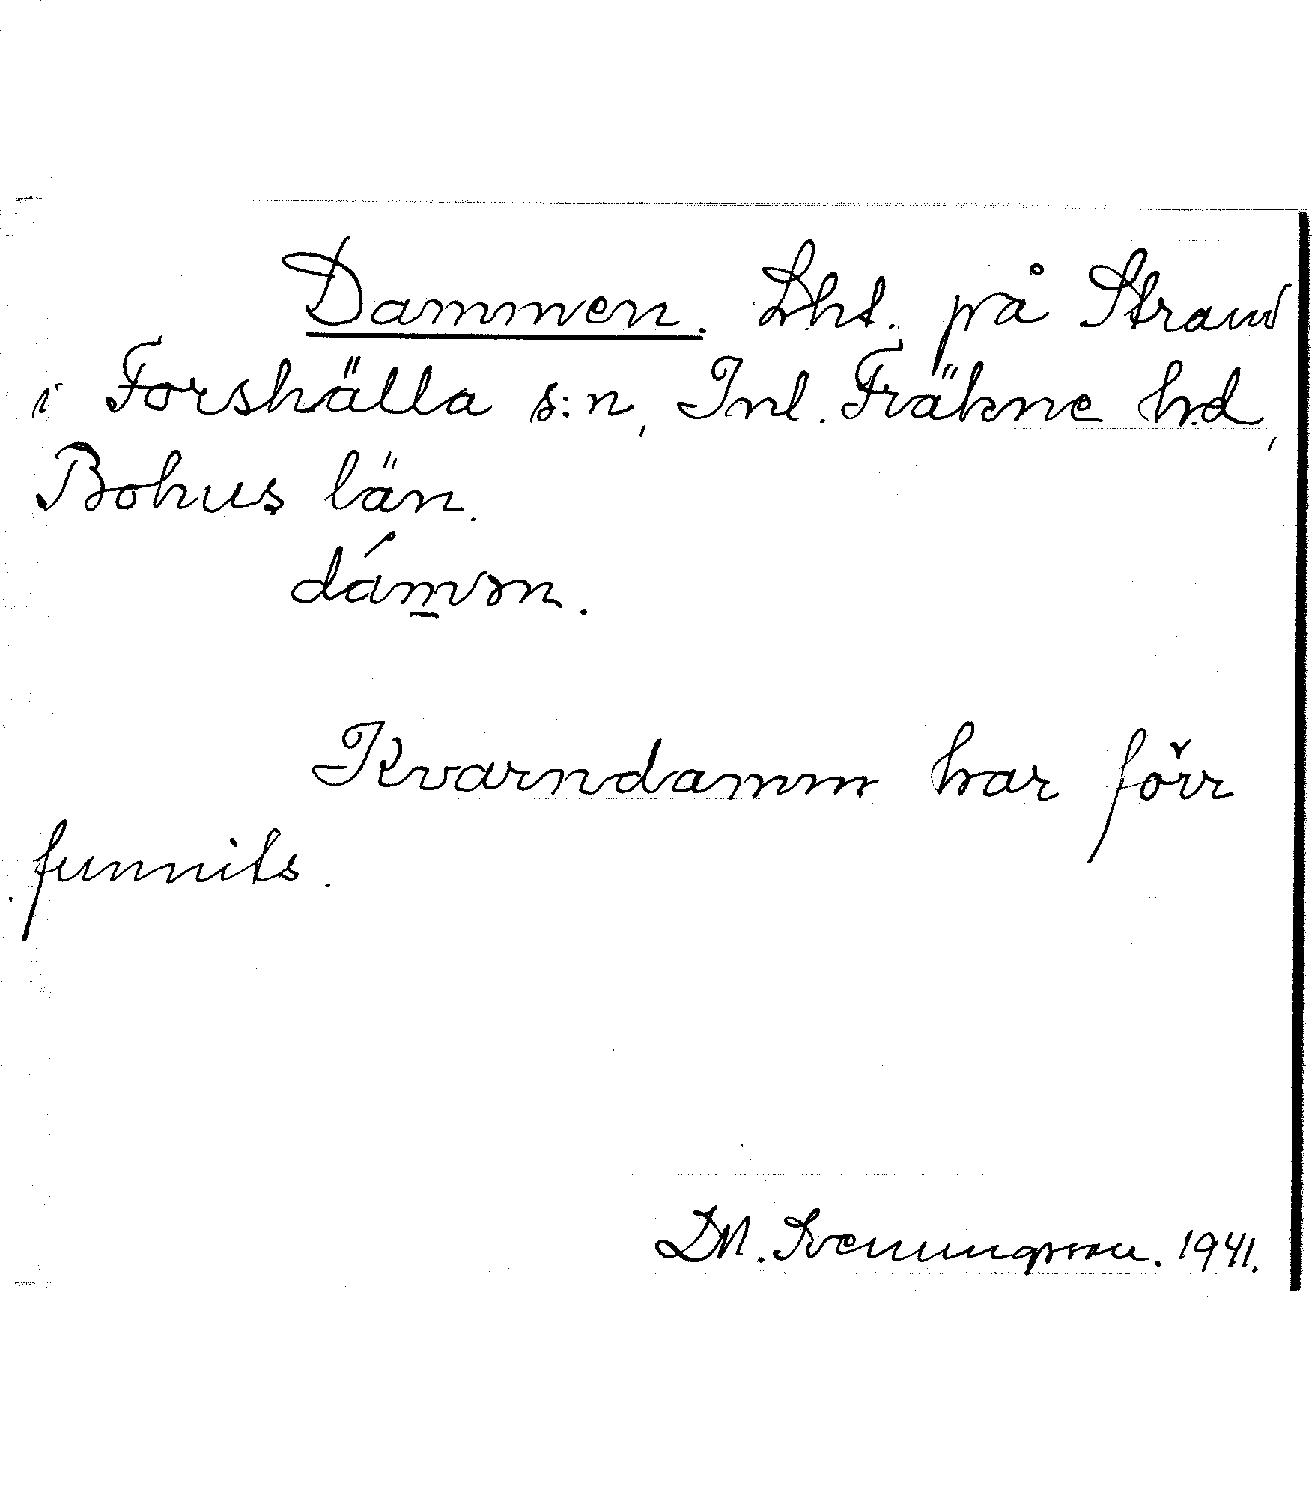 Dammen. Lht. på Strand
i Forshälla s:n, Inl. Fräkne hd,
Bohus län.
dám̲ən.
Kvarndamm har förr
funnits.
D.N. Sveningsson. 1941.